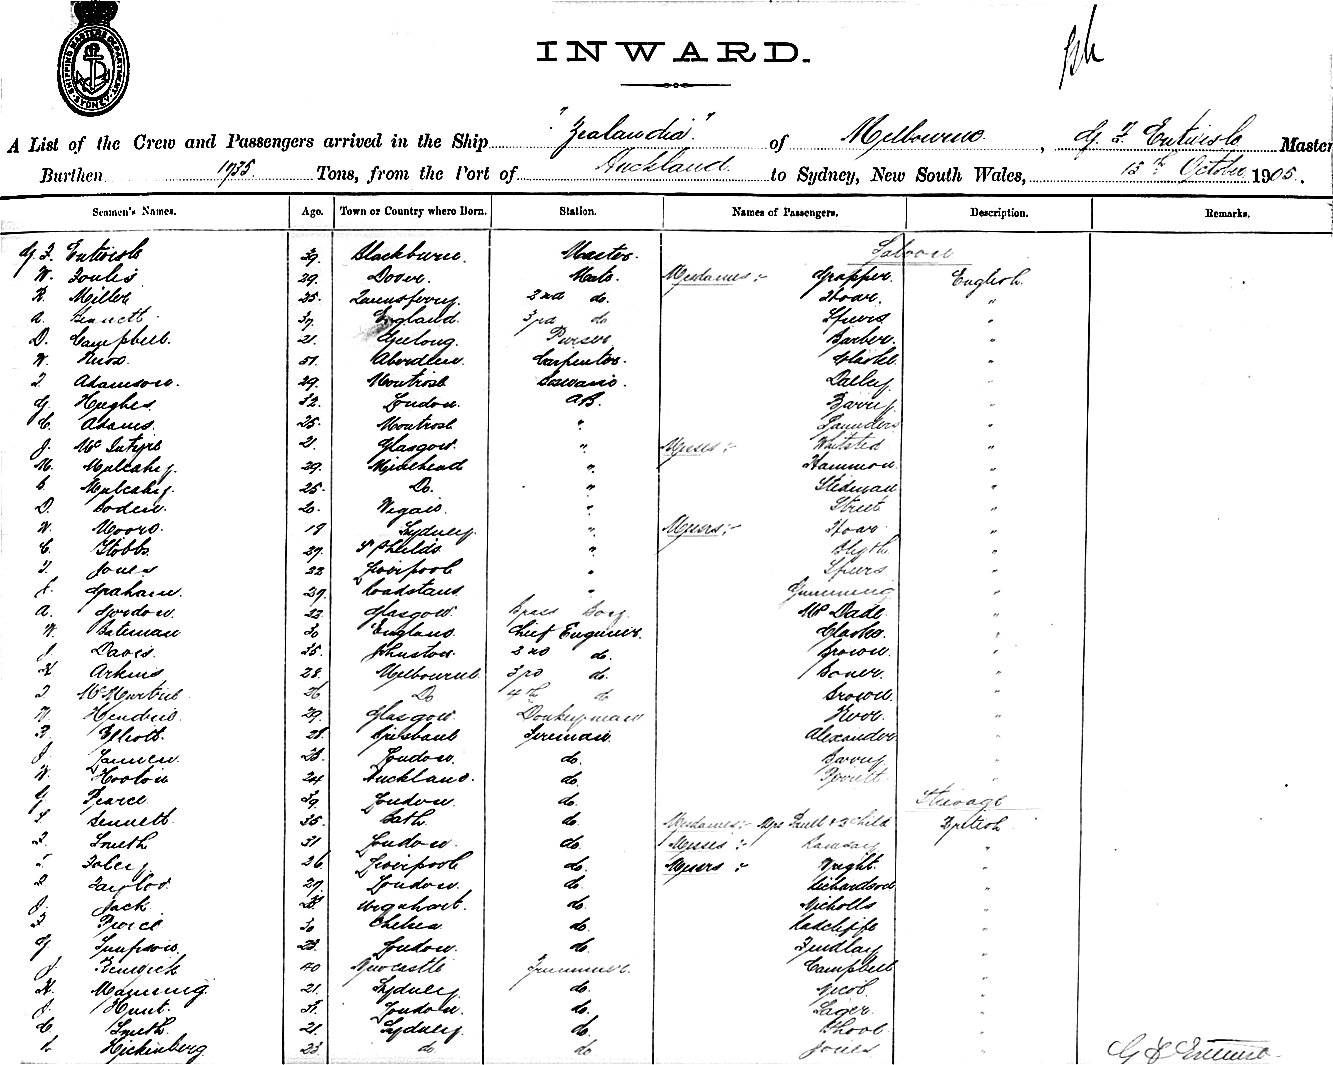 SHIPPING MASTERS DEPARTMENT SYDNEY
INWARD.
A List of the Crew and Passengers arrived in the Ship "Zealandia" of Melbourne, G. F. Entwisle Master
Burthen 1935 Tons, from the Port of Auckland to Sydney, New South Wales, 15th October 1905.
Seamen's Names. Age. Town or Country where Born. Station. Names of Passengers. Description. Remarks.
G F Entwisle 39 Blackburn. Master. Saloon
W. 29. Dover. Mate Mesdames:- Grapper. English
R. Miller 25. Queensferry 2nd do. Hoar. "
A. Bennett 37 England. 3rd do Spiers "
D. Campbell. 21. Geelong. Purser Barber "
W. Ross 51 Aberdeen Carpenter. "
T. Adamson. 29. Montrose Dalley "
G. Hughes. 32. London. AB. Barry "
C. Adams. 25. Montrose " Saunders "
J. McIntyre 21 Glasgow. " Misses:- Whitsted "
M. Mulcahy. 29. " Hammon "
Mulcahy. 25. Do. " Stedman "
D. Boden. 20. Wigan. " Street "
W. Moore. 19 Sydney. " Messrs:- Hoar "
C. Stobbs 39. S Shields " Blyth "
T. Jones 22 Liverpool " Spiers "
J. Graham. 29. " "
A. Gordon. 22 Glasgow. Brass Boy. McDade "
W. Bateman 30 England. Chief Engineer. Clarke "
J. Davis. 35. Johnston 2nd do. Brown "
H Arkins 28. Melbourne 3rd do. "
26 Do 4th do Brown "
29. Glasgow. Donkeyman "
Elliott. 28 Brisbane Fireman Alexander "
J. 28. London. do. Barry "
W Hooton 24 Auckland. do. "
G. Pearce 39. London do. Steerage
Bennett 35. Bath do. Mesdames:- Mrs & 3 Child British
Smith 31 London. do. Misses:- Ramsay "
Foley 26 Liverpool do. Messrs:- Wright. "
Taylor. 29. London. do. Richardson "
J. Jack 28 Urquhart. do. Nicholls "
Pierce 30 Chelsea do. Radcliffe "
G Simpson. 23. London do. Findlay "
J. Renwick 40 Newcastle Trimmer. Campbell "
H. Manning 21. Sydney do. "
J. Hunt. 31. London. do. "
C. Smith 21. Sydney. do. "
Hickinberg 23 do do Jones "